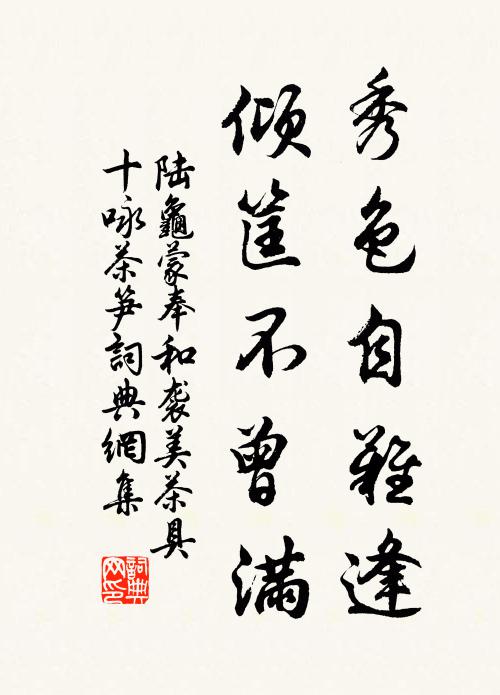 秀色自難逢
傾筐不曾滿
陆龜蒙奉和袭美茶具
十咏茶笋詞典網集
詞典网印